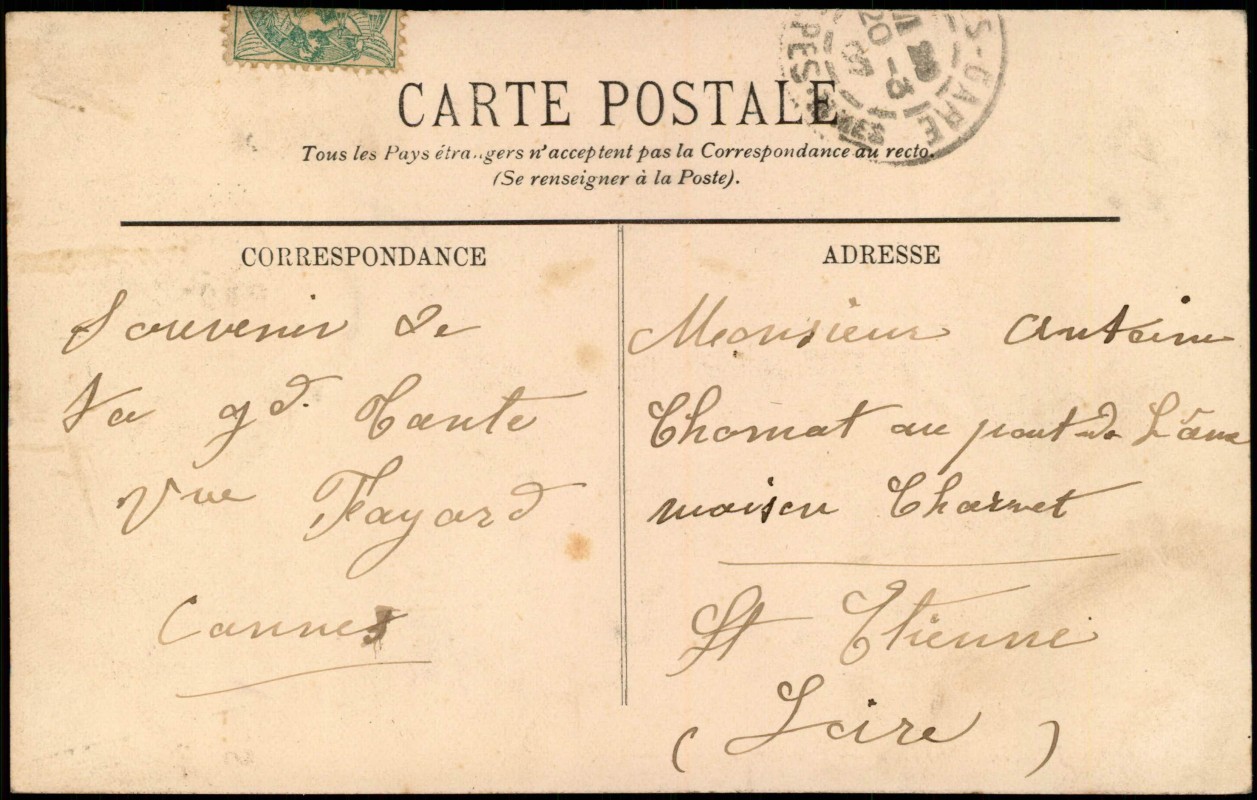 CARTE POSTALE
Tous les Pays étrangers n'acceptent pas la Correspondance au recto.
(Se renseigner à la Poste).
CORRESPONDANCE
Souvenir de
Ta gd. Tante
Vve Fayard
Cannes
ADRESSE
Monsieur Antoine
Thomat au pont de L'âne
maison Charvet
St Etienne
(Loire)
S-GARE
PES
20